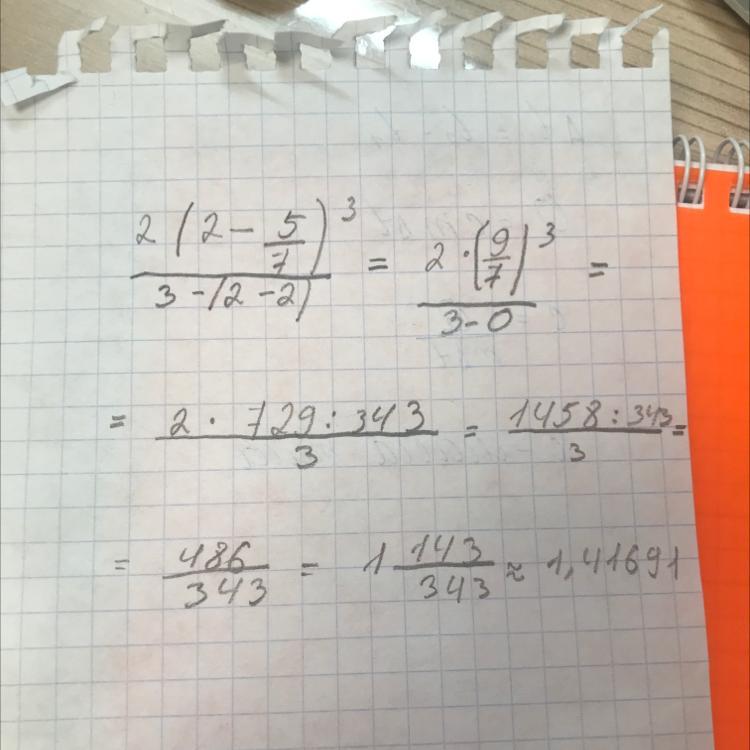 2(2 - 5/7)^3 / 3 - (2 - 2) = 2 · (9/7)^3 / 3 - 0 =
= 2 · 729 : 343 / 3 = 1458 : 343 / 3 =
= 486/343 = 1 143/343 ≈ 1,41691